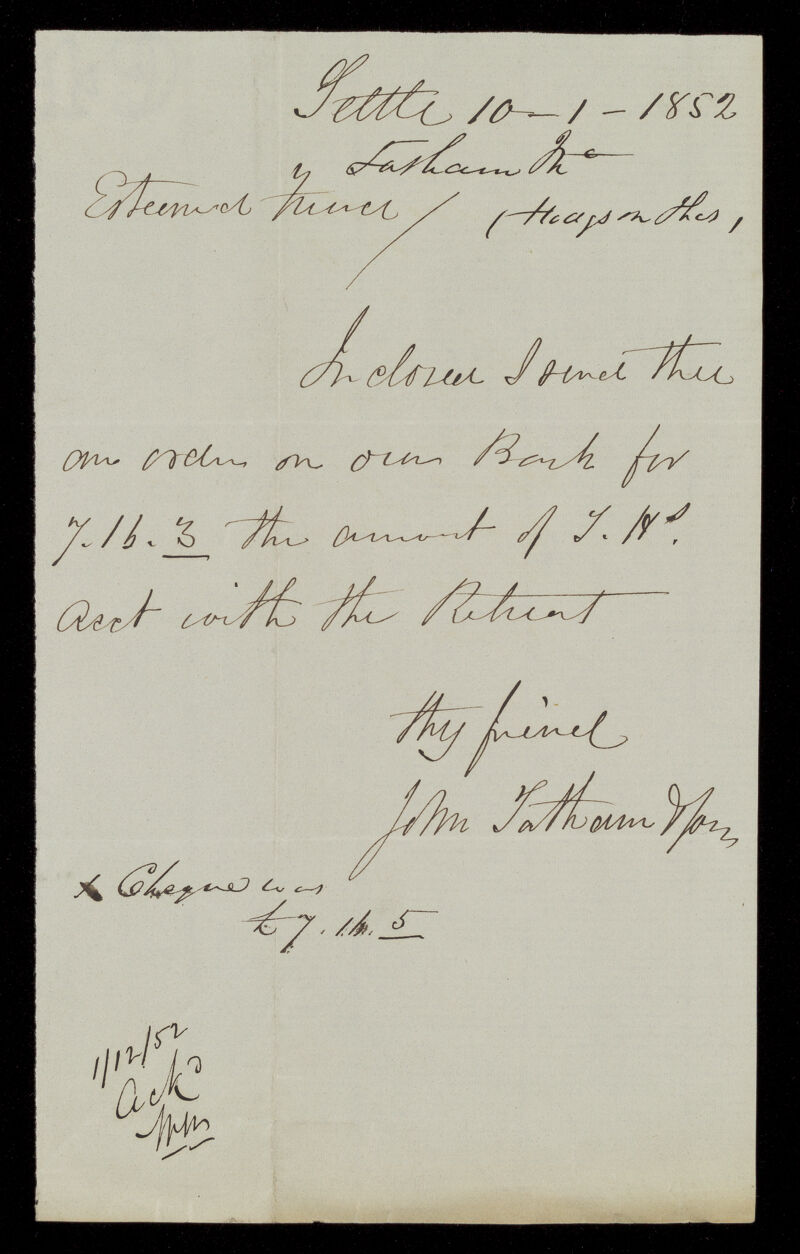 Settle 10 - 1 - 1852
Tatham Jno
Esteemed Friend /
(Hodgson Thos)
Inclosed I send thee
an order on our Bank for
7.16.3 the amount of T. Hs.
acct with the Retreat
thy friend
John Tatham & Son
x Cheque was
£7.16.5
1/12/52
Ackd